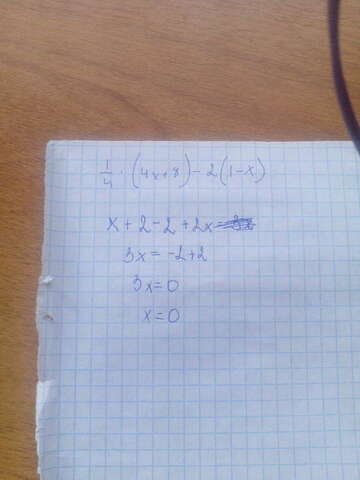 1/4 · (4x+8) - 2(1-x)
x + 2 - 2 + 2x =
3x = -2+2
3x = 0
x = 0